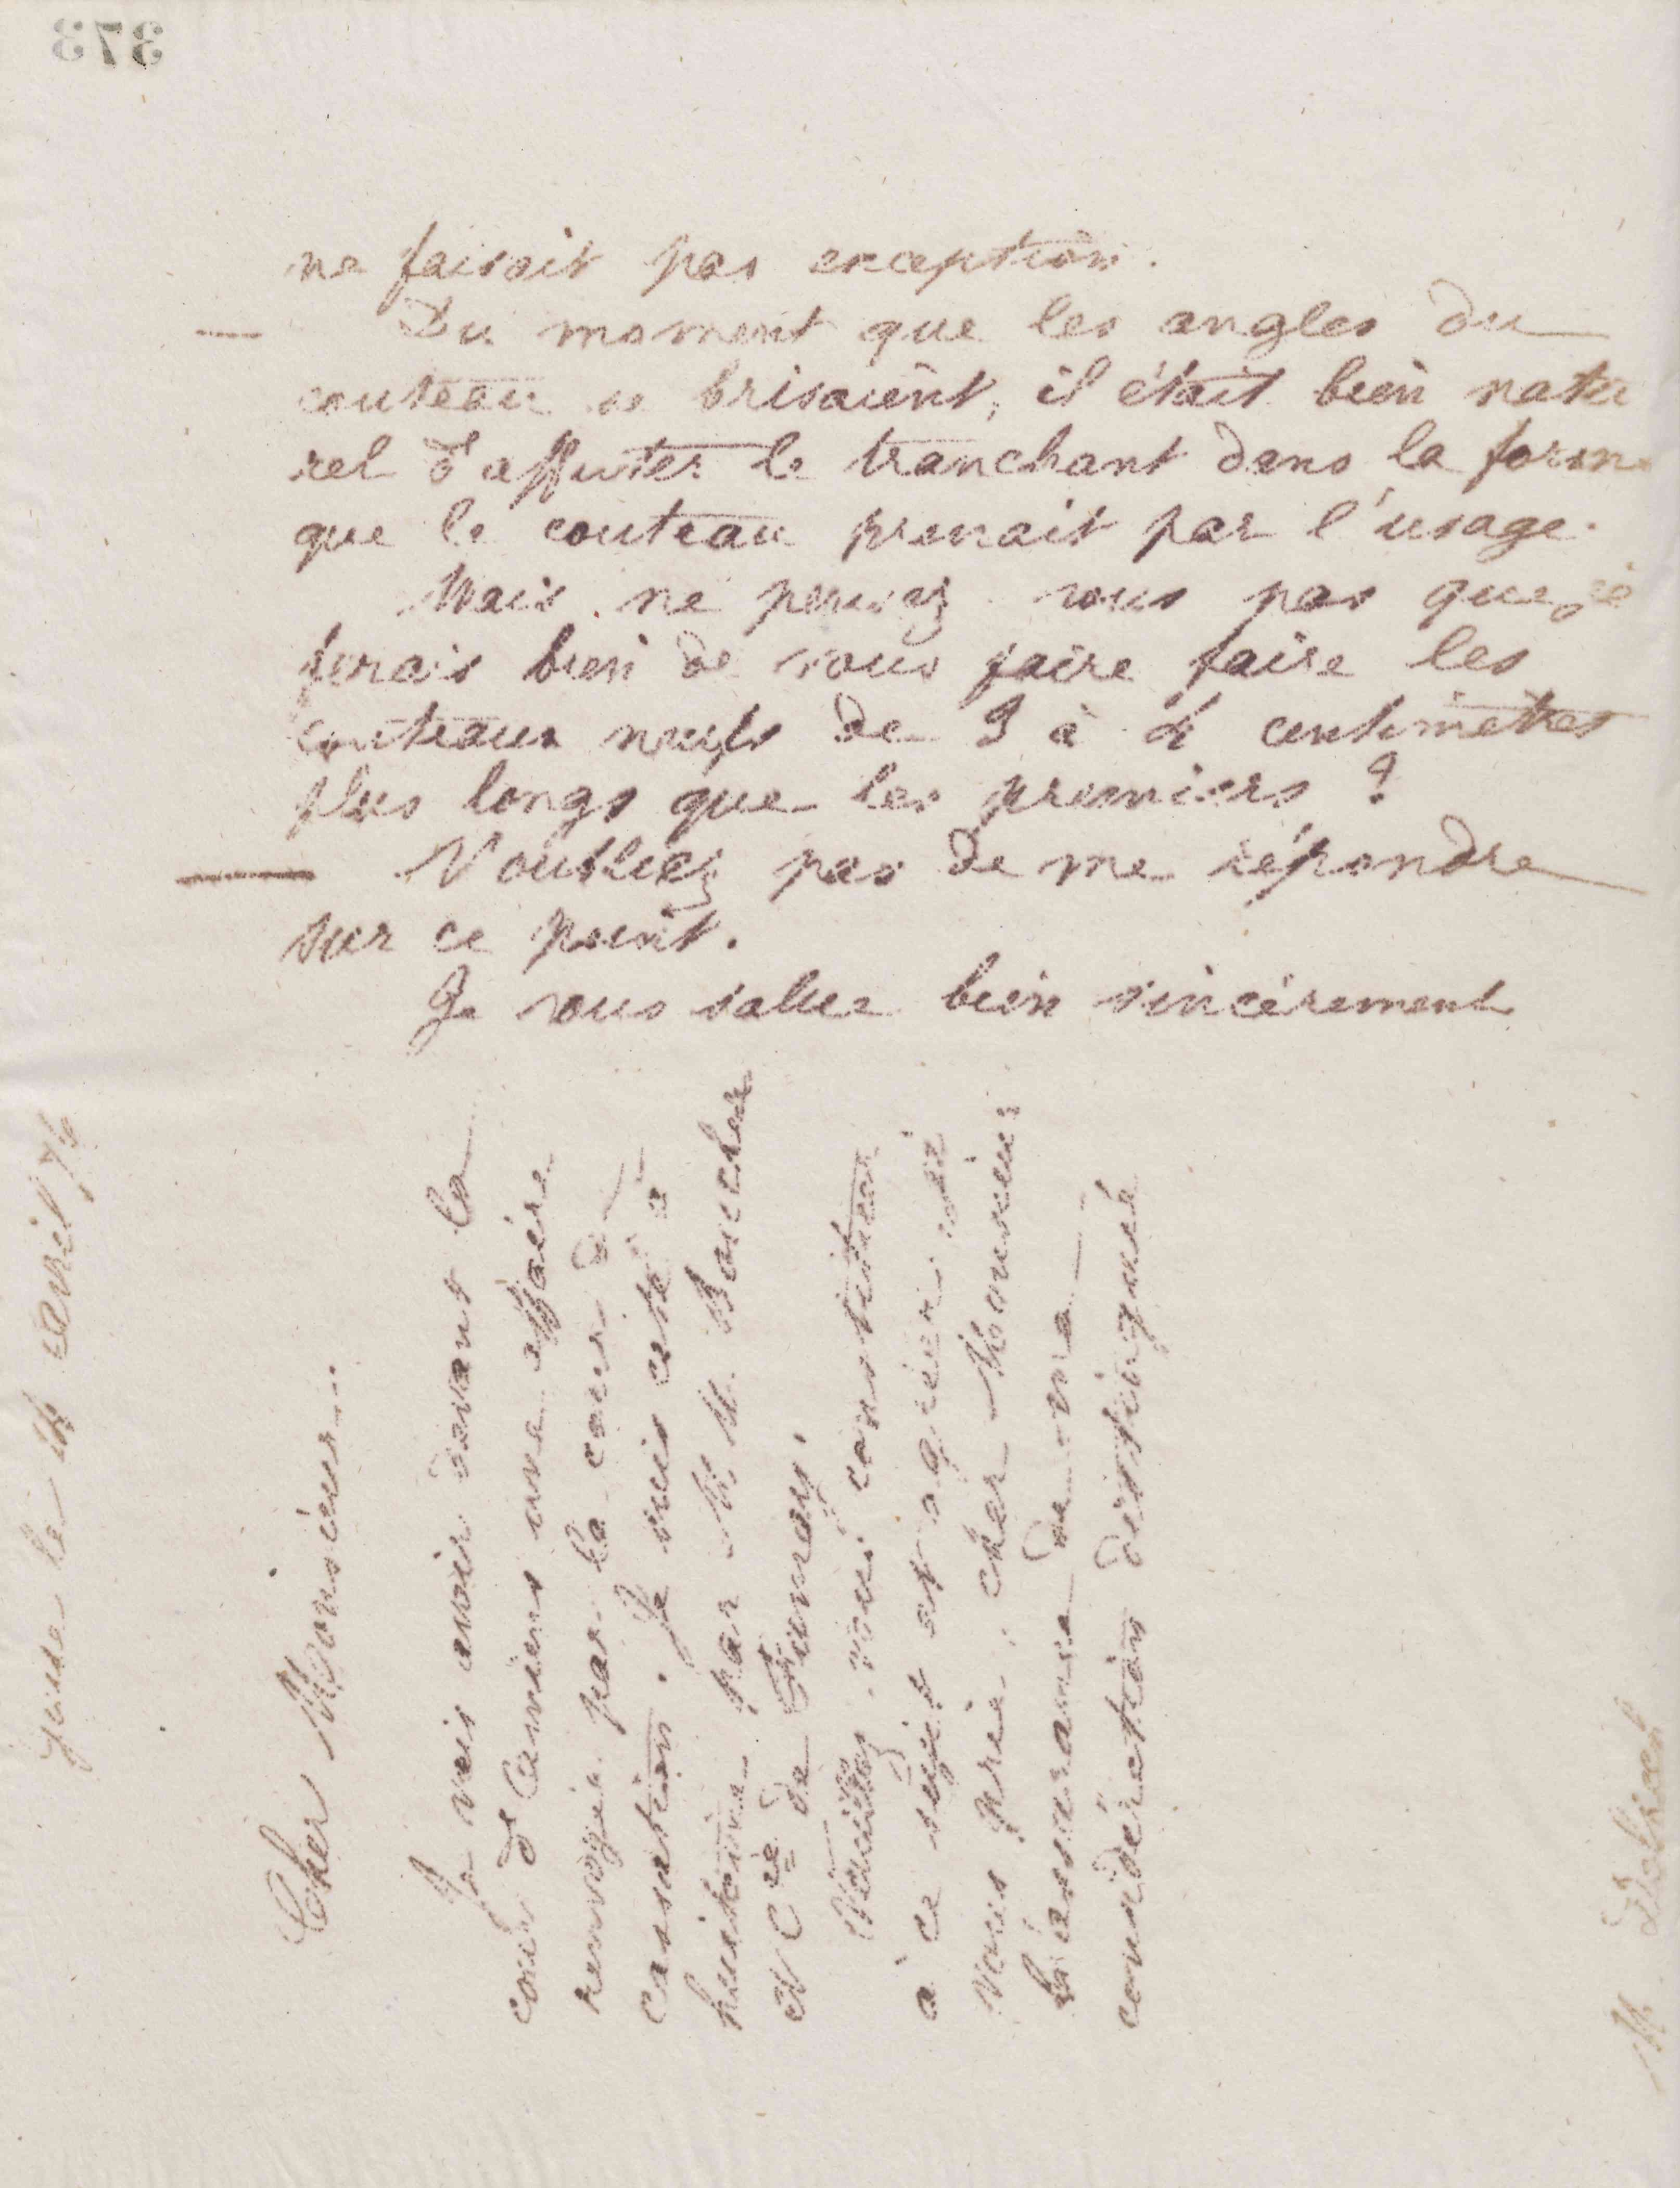 373
ne faisait pas exception.
— Du moment que les angles du
couteau se brisaient, il était bien natu
rel d'affuter le tranchant dans la forme
que le couteau prenait par l'usage.
Mais ne pensez vous pas que je
ferais bien de vous faire faire les
couteaux neufs de 3 à 4 centimètres
plus longs que les premiers ?
— N'oubliez pas de me répondre
sur ce point.
Je vous salue bien sincèrement
Guise le 14 avril 74
Cher Monsieur
Je vais avoir devant la
cour d'Amiens une affaire
renvoyée par la cour de
Cassation. Je suis cité à
huitaine par M M Boucher
et Cie de Fumay.
Veuillez vous constituer
à ce sujet et agréer je
vous prie, cher Monsieur
l'assurance de ma
considération distinguée
M. Delpech